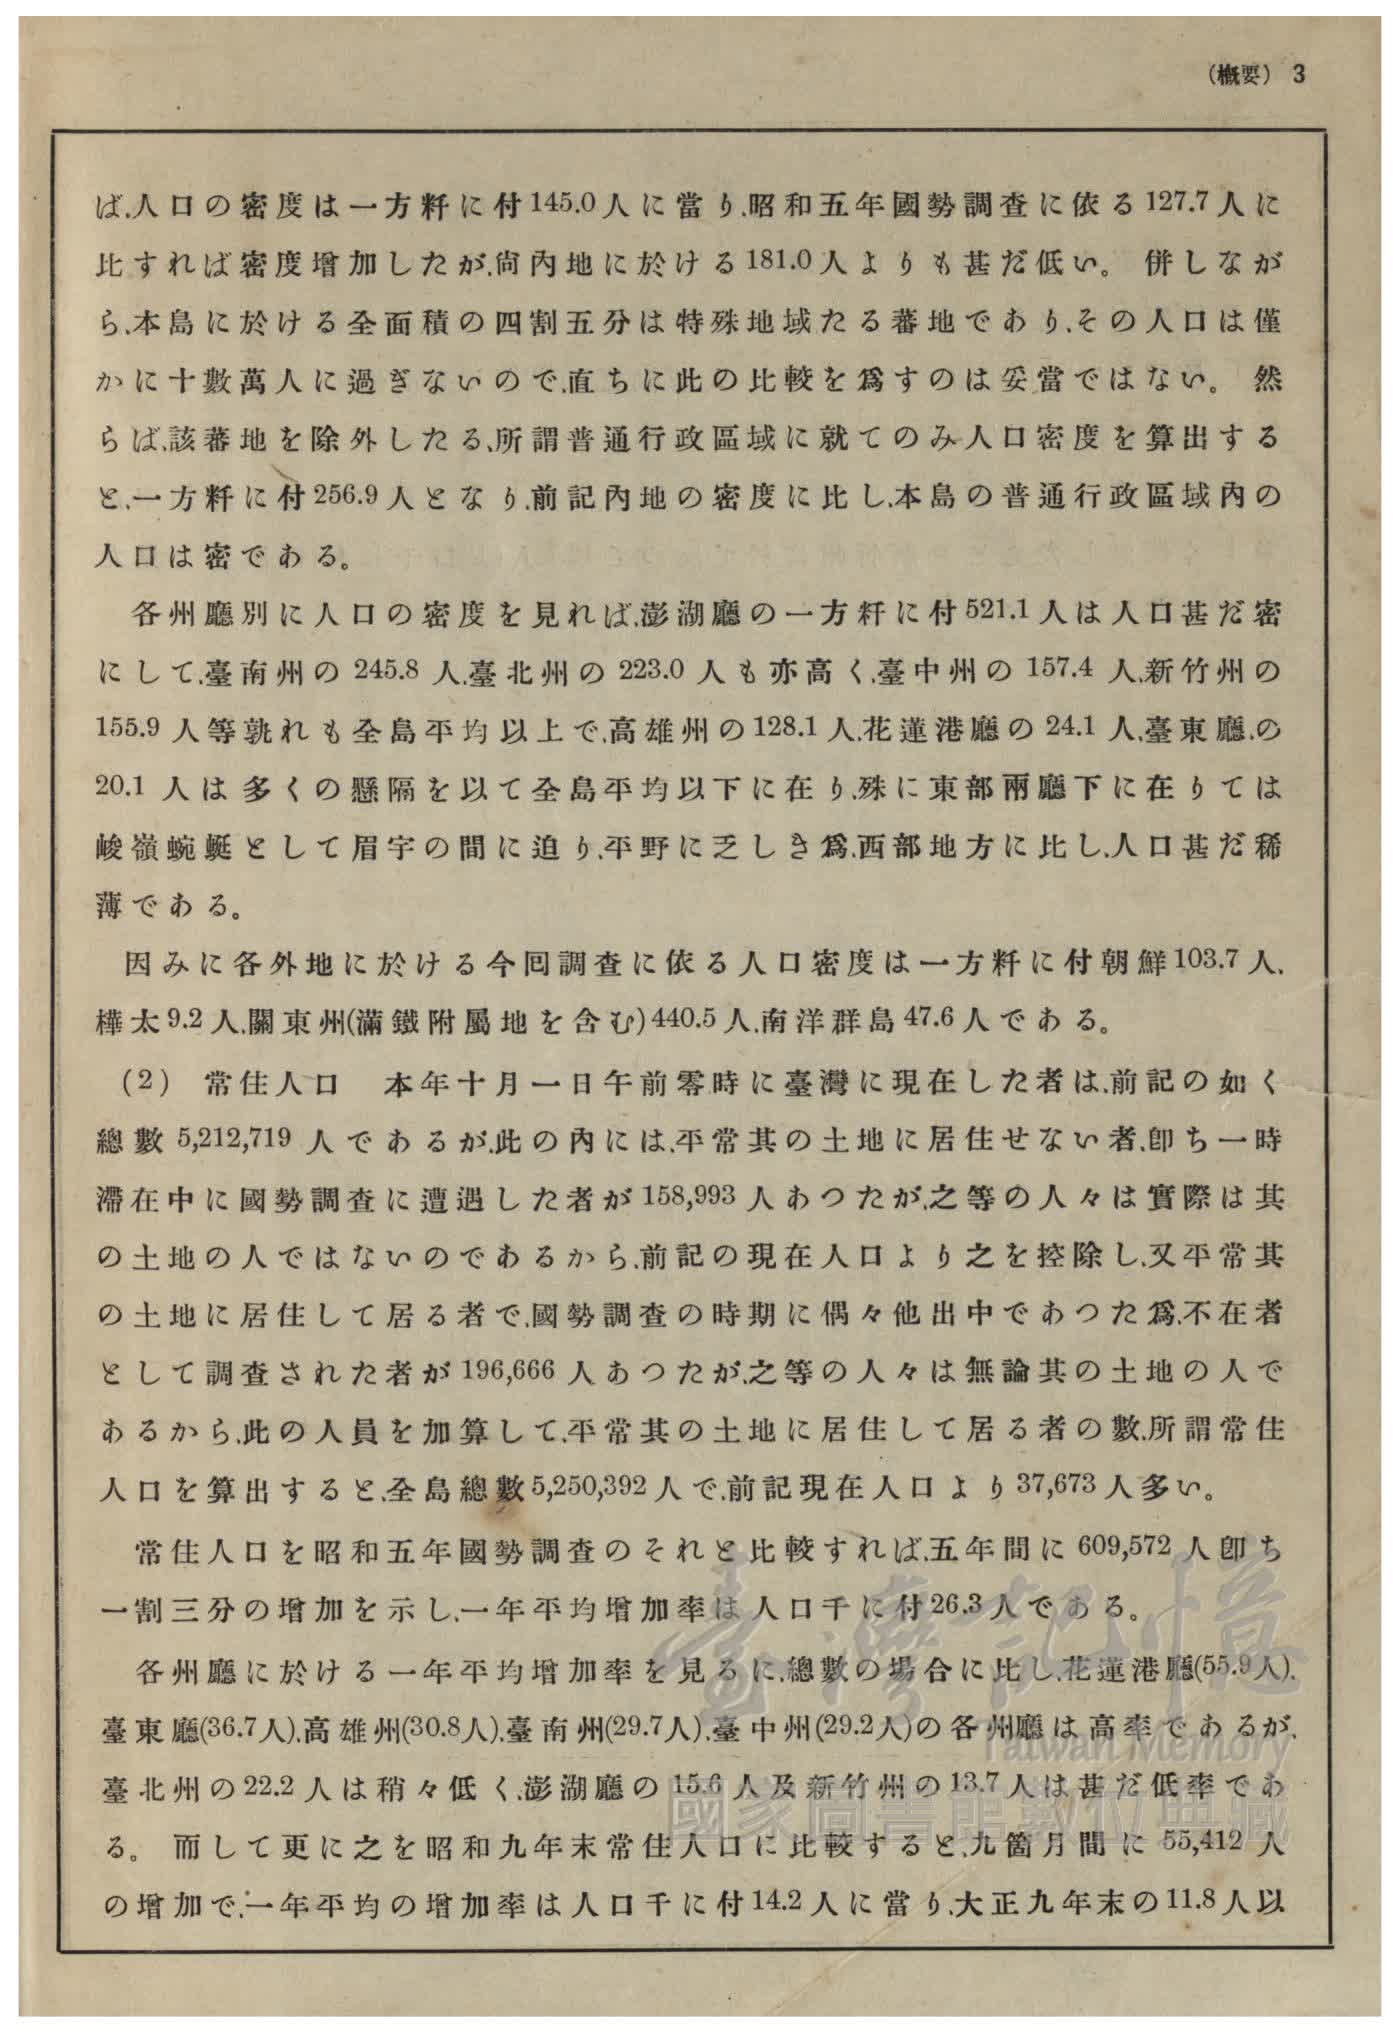 (概要) 3
ば、人口の密度は一方粁に付145.0人に當り、昭和五年國勢調査に依る127.7人に
比すれば密度增加したが、尙內地に於ける181.0人よりも甚だ低い。 併しなが
ら、本島に於ける全面積の四割五分は特殊地域たる蕃地であり、その人口は僅
かに十數萬人に過ぎないので、直ちに此の比較を爲すのは妥當ではない。 然
らば、該蕃地を除外したる、所謂普通行政區域に就てのみ人口密度を算出する
と、一方粁に付256.9人となり、前記內地の密度に比し、本島の普通行政區域內の
人口は密である。
各州廳別に人口の密度を見れば、澎湖廳の一方粁に付521.1人は人口甚だ密
にして、臺南州の245.8人、臺北州の223.0人も亦高く、臺中州の157.4人、新竹州の
155.9人等孰れも全島平均以上で、高雄州の128.1人、花蓮港廳の24.1人、臺東廳の
20.1人は多くの懸隔を以て全島平均以下に在り、殊に東部兩廳下に在りては
峻嶺蜿蜒として眉宇の間に迫り、平野に乏しき爲、西部地方に比し、人口甚だ稀
薄である。
因みに各外地に於ける今囘調査に依る人口密度は一方粁に付朝鮮103.7人、
樺太9.2人、關東州(滿鐵附屬地を含む)440.5人、南洋群島47.6人である。
(2) 常住人口 本年十月一日午前零時に臺灣に現在した者は、前記の如く
總數5,212,719人であるが、此の內には、平常其の土地に居住せない者、卽ち一時
滯在中に國勢調査に遭遇した者が158,993人あつたが、之等の人々は實際は其
の土地の人ではないのであるから、前記の現在人口より之を控除し、又平常其
の土地に居住して居る者で、國勢調査の時期に偶々他出中であつた爲、不在者
として調査された者が196,666人あつたが、之等の人々は無論其の土地の人で
あるから、此の人員を加算して、平常其の土地に居住して居る者の數、所謂常住
人口を算出すると、全島總數5,250,392人で、前記現在人口より37,673人多い。
常住人口を昭和五年國勢調査のそれと比較すれば、五年間に609,572人卽ち
一割三分の增加を示し、一年平均增加率は人口千に付26.3人である。
各州廳に於ける一年平均增加率を見るに、總數の場合に比し、花蓮港廳(55.9人)、
臺東廳(36.7人)、高雄州(30.8人)、臺南州(29.7人)、臺中州(29.2人)の各州廳は高率であるが、
臺北州の22.2人は稍々低く、澎湖廳の15.6人及新竹州の13.7人は甚だ低率であ
る。 而して更に之を昭和九年末常住人口に比較すると、九箇月間に55,412人
の增加で、一年平均の增加率は人口千に付14.2人に當り、大正九年末の11.8人以
臺灣記憶
Taiwan Memory
國家圖書館數位典藏